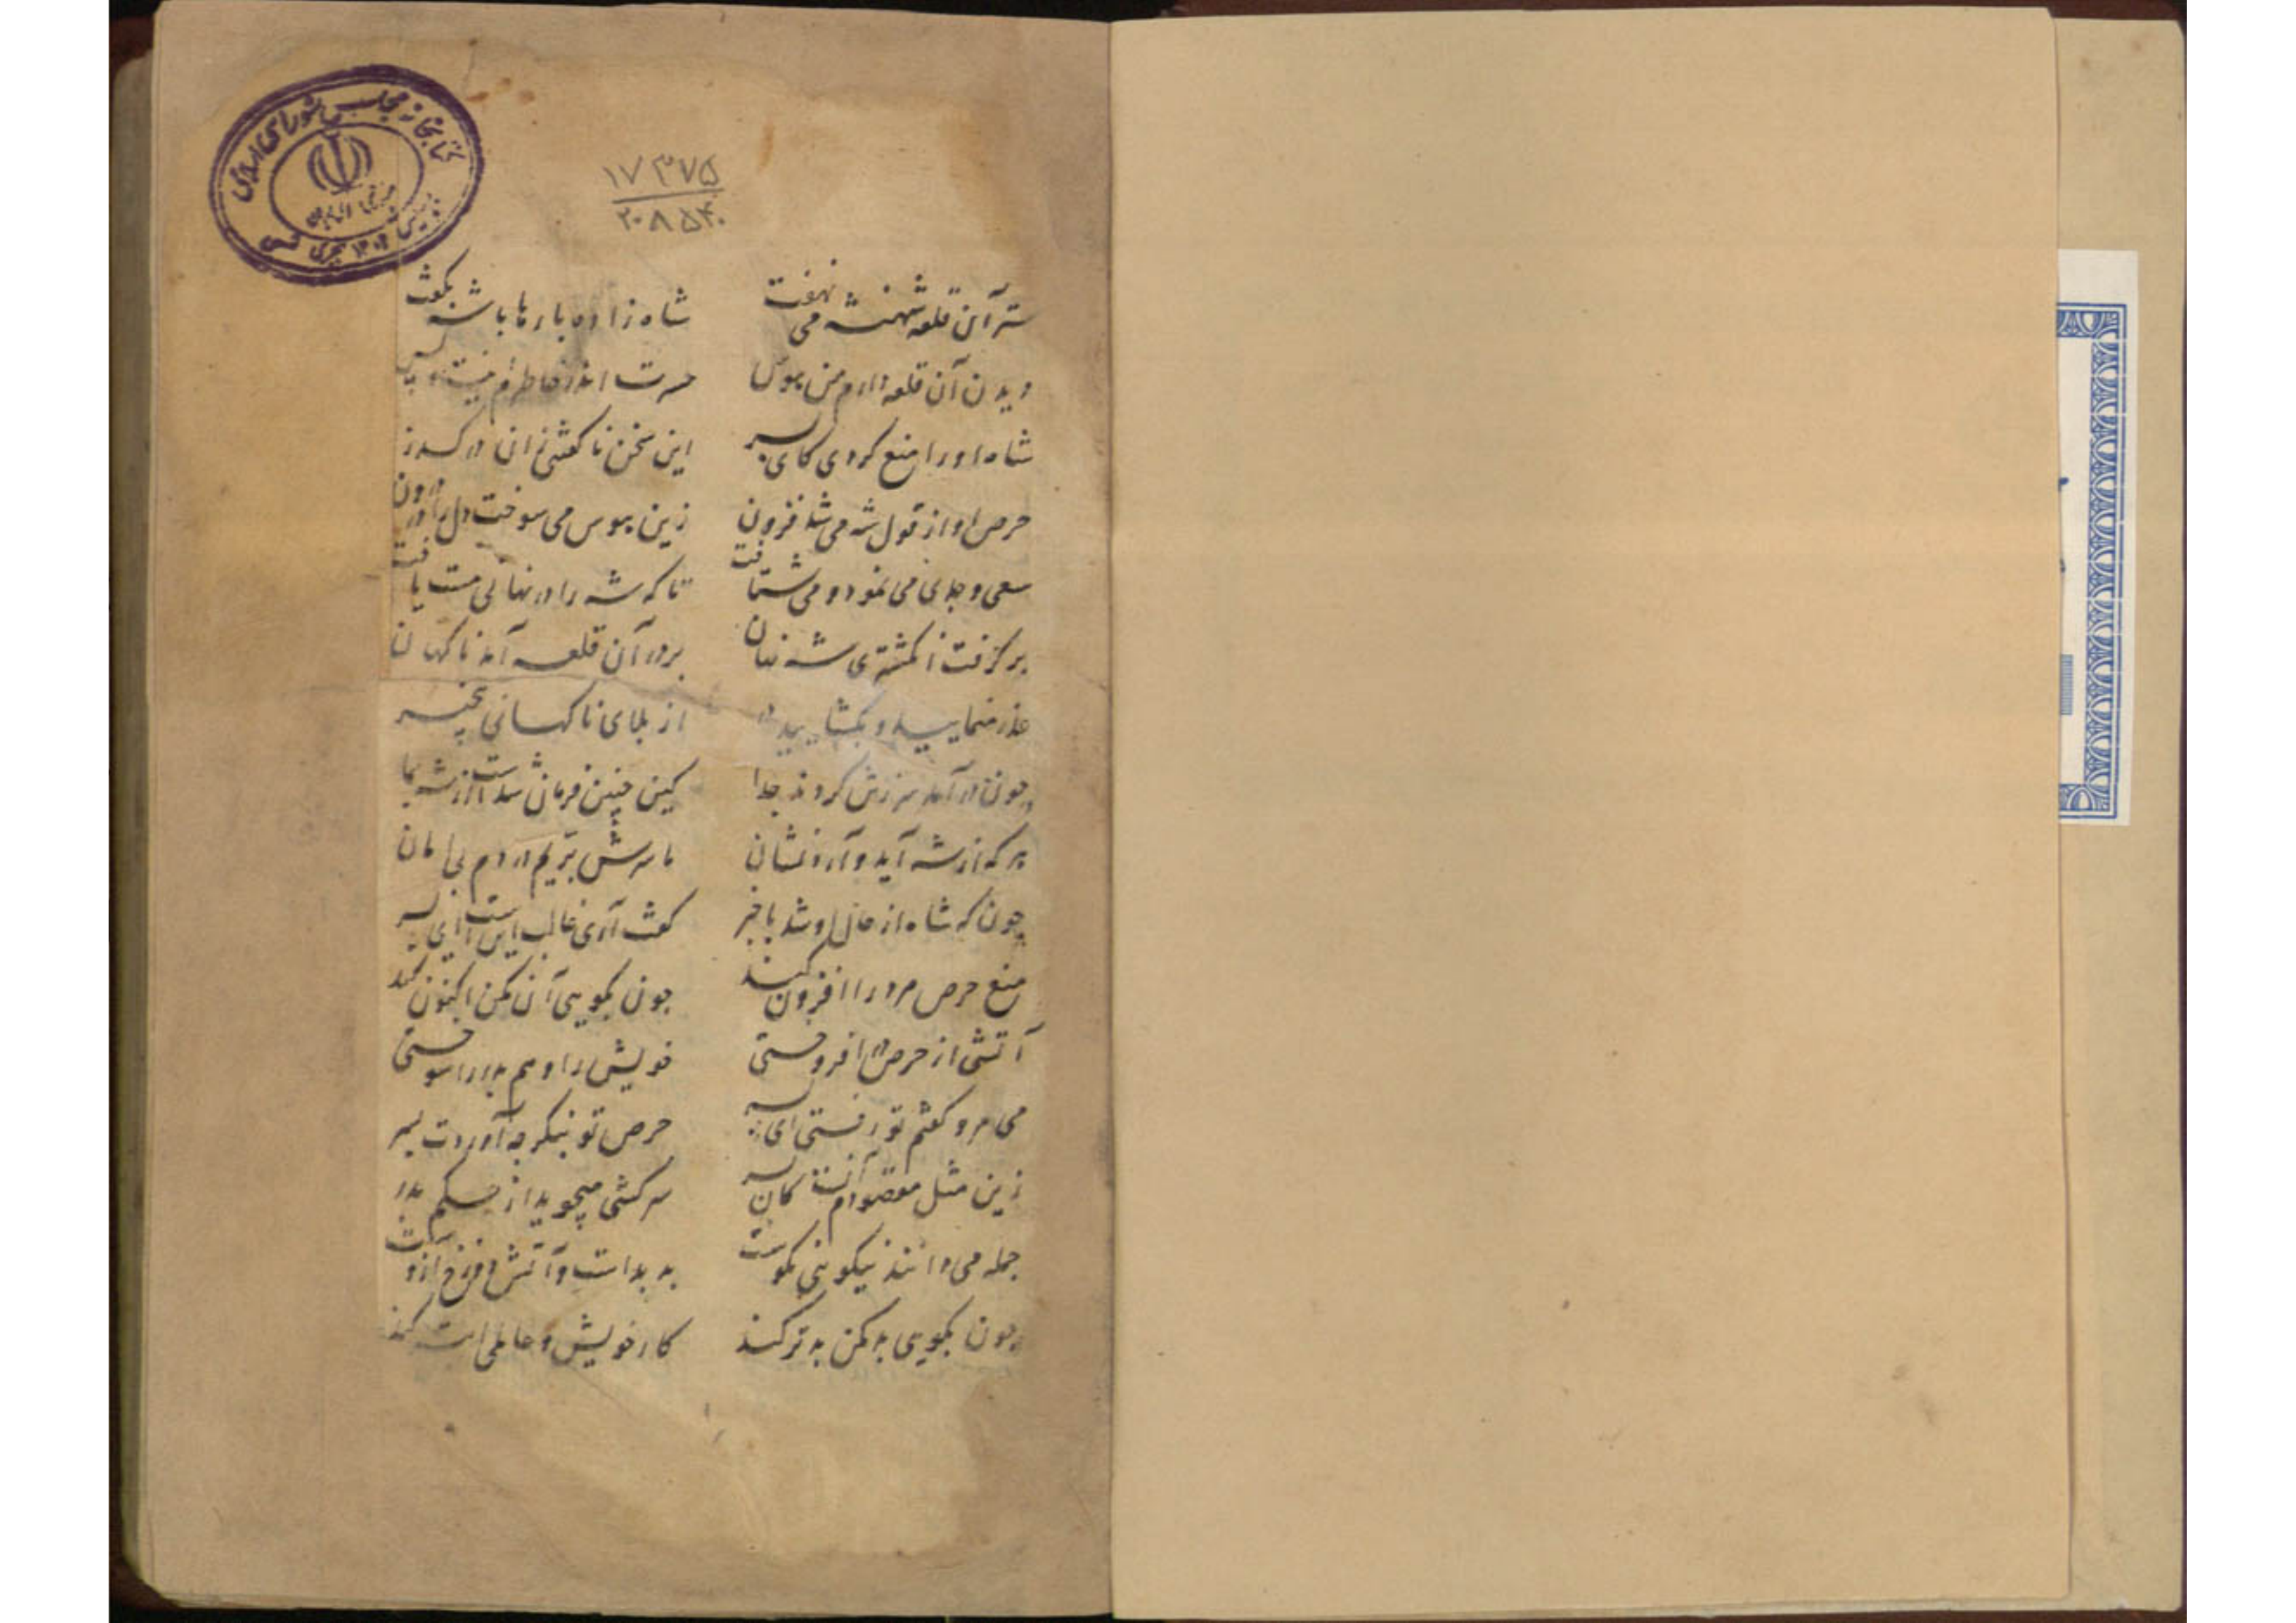 کتابخانه مجلس شورای اسلامی
۱۷۳۷۵
۲۰۸۵۴۰
سرّ آن قلعه شهنشه می نهفت شاه زاده بارها با شه بگفت
دیدن آن قلعه دارم من هوس حسرت اندر خاطرم نیست و پس
شاه او را منع کردی کای پسر این سخن ناگفتنی زان درگذر
حرص او از قول شه می شد فزون زین هوس می سوخت دل را در درون
سعی و جدی می نمود و می شتافت تا که شه را در نهانی مست یافت
برگرفت انگشتری شه نهان بر در آن قلعه آمد ناگهان
عذر منمایید و بگشایید در از بلای ناگهانی بیخبر
چون در آمد سر زتن کردند جدا کین چنین فرمان شدست از شه بما
هر که از شه آید و آرد نشان ما سرش بّریم در دم بی امان
چون که شاه از حال او شد با خبر گفت آری غالب این است ای پسر
منع حرص مرد را افزون کند چون بگویی آن مکن اکنون کند
آتشی از حرص در افروختی خویش را و هم پدر را سوختی
می مرو گفتم تو رفتی ای پسر حرص تو بنگر چه آوردت بسر
زین مثل مقصودم آنست کان پسر سرکشی میجوید از حکم پدر
جمله می دانند نیکویی نکوست بد بداست و آتش دوزخ ازوست
چون بگویی بد مکن بد تر کند کار خویش و عاملی ابتر کند